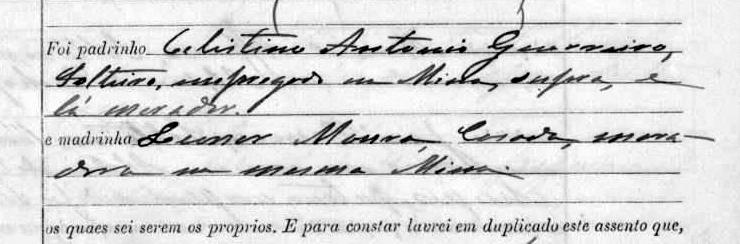 Foi padrinho Celistino Antonio Guerreiro,
solteiro, empregado na Mina, supra, e
lá morador.
e madrinha Leonor Moura, Casada, mora-
dora na mesma Mina.
os quaes sei serem os proprios. E para constar lavrei em duplicado este assento que,